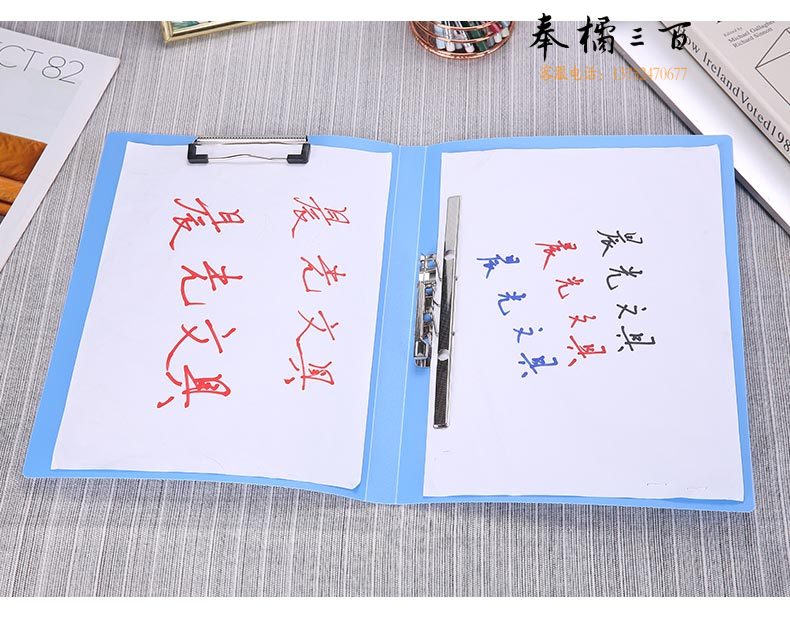 奉橘三百
客服电话：
ECT 82
Edited by
Michael Gallagher
Richard Sinnott
w Ireland Voted 198
晨光文具
晨光文具
晨光文具
晨光文具
晨光文具